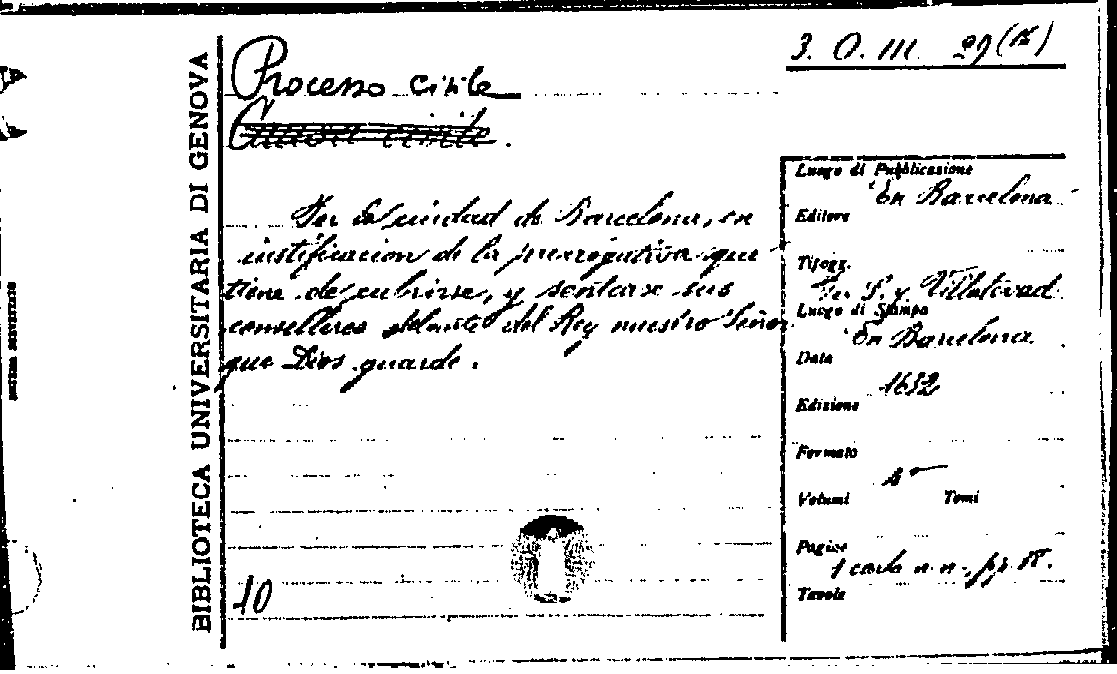 3. O. III. 29 (15)
Processo civile
Causa civile.
BIBLIOTECA UNIVERSITARIA DI GENOVA
Per la ciudad de Barcelona, en
iustificacion de la prerrogativa que
tiene de cubrirse, y sentarse sus
conselleres delante del Rey nuestro Señor
que Dios guarde.
10
Luogo di Pubblicazione
En Barcelona
Editore
Tipogr.
Per S. y
Luogo di Stampa
En Barcelona
Data
1632
Edizione
Formato
4°
Volumi Tomi
Pagine
1 carta n. n., pp. 18.
Tavole